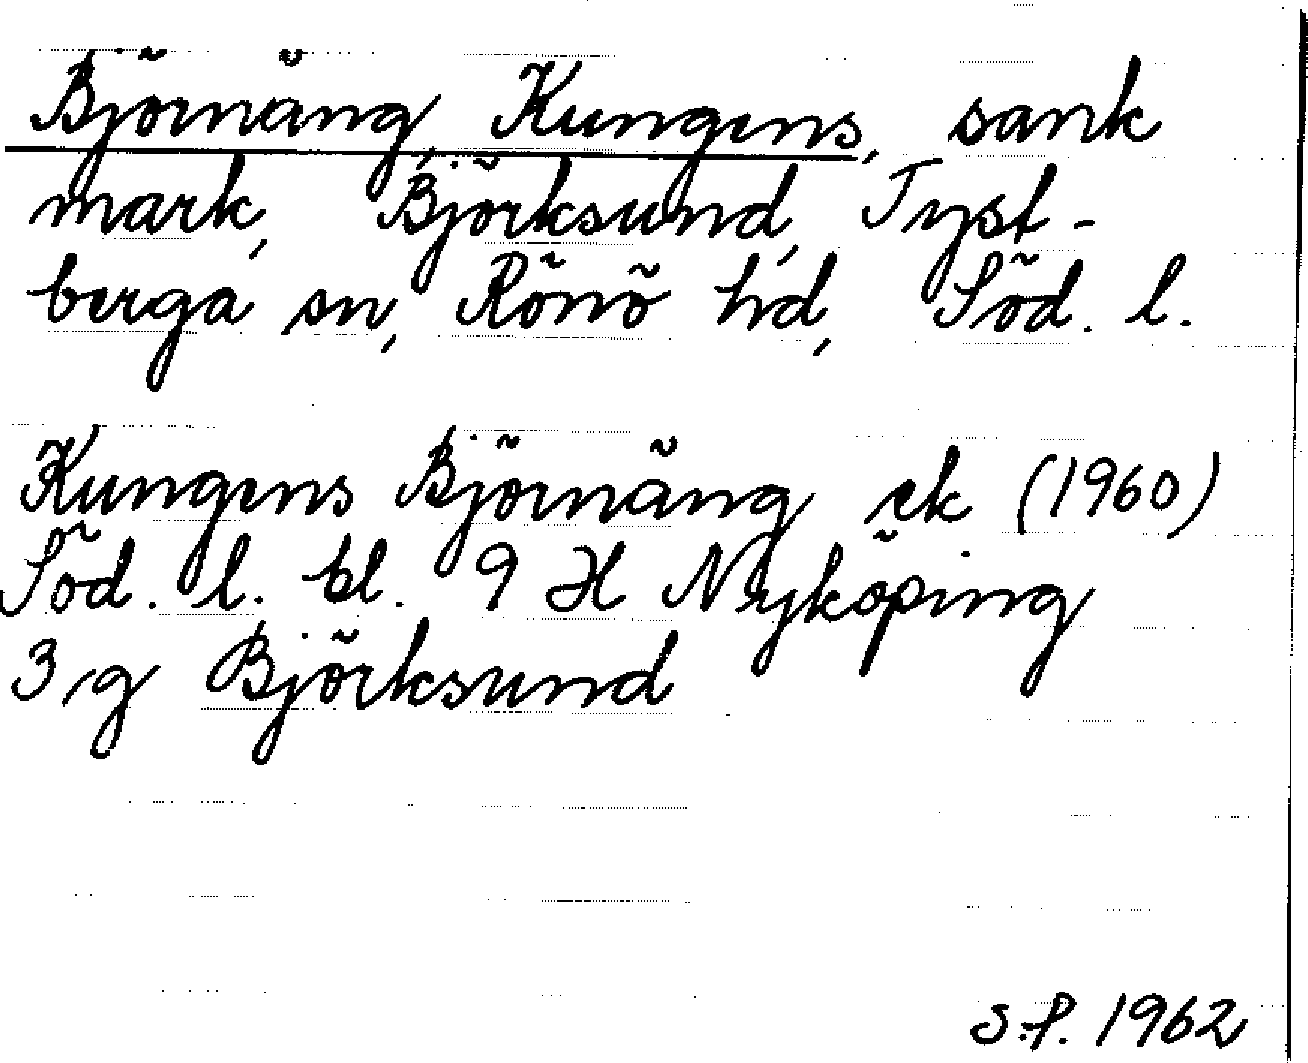 Björnäng, Kungens, sank
mark, Björksund, Tyst-
berga sn, Rönö hd, Söd. l.
Kungens Björnäng ek (1960)
Söd. l. bl. 9 H Nyköping
3 g Björksund
S.P. 1962